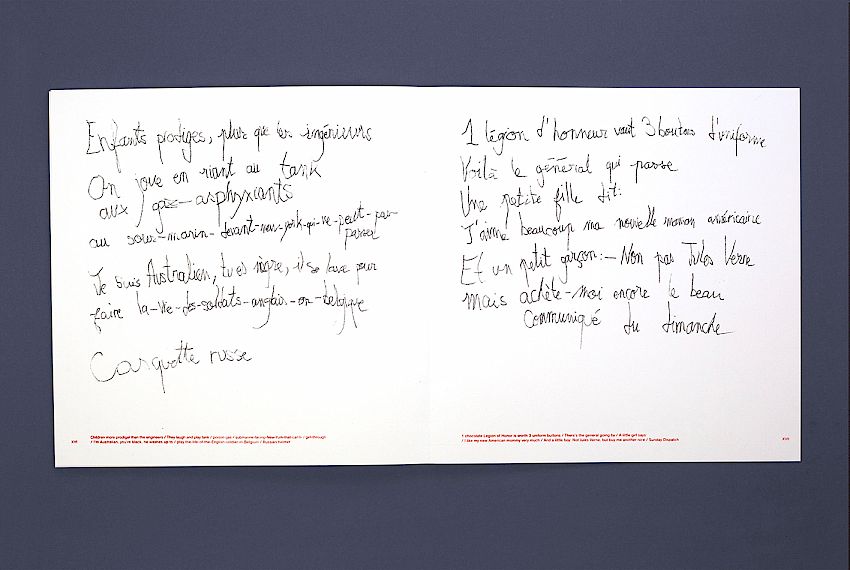 Enfants prodiges, plus que les ingénieurs
On joue en riant au tank
aux gaz-asphyxiants
au sous-marin-devant-new-york-qui-ne-peut-pas-
passer
Je suis Australien, tu es nègre, il se lave pour
faire la-vie-des-soldats-anglais-en-belgique
Casquette russe
XVI
Children more prodigal than the engineers / They laugh and play tank / poison gas / submarine-facing-New-York-that-can't- / get-through
/ I'm Australian, you're black, he washes up to / play the-life-of-the-English-soldier-in-Belgium / Russian helmet
1 légion d'honneur vaut 3 boutons d'uniforme
Voilà le général qui passe
Une petite fille dit:
J'aime beaucoup ma nouvelle maman américaine
Et un petit garçon:- Non pas Jules Verne
mais achète-moi encore le beau
Communiqué du dimanche
1 chocolate Legion of Honor is worth 3 uniform buttons / There's the general going by / A little girl says:
/ I like my new American mommy very much / And a little boy: Not Jules Verne, but buy me another nice / Sunday Dispatch
XVII